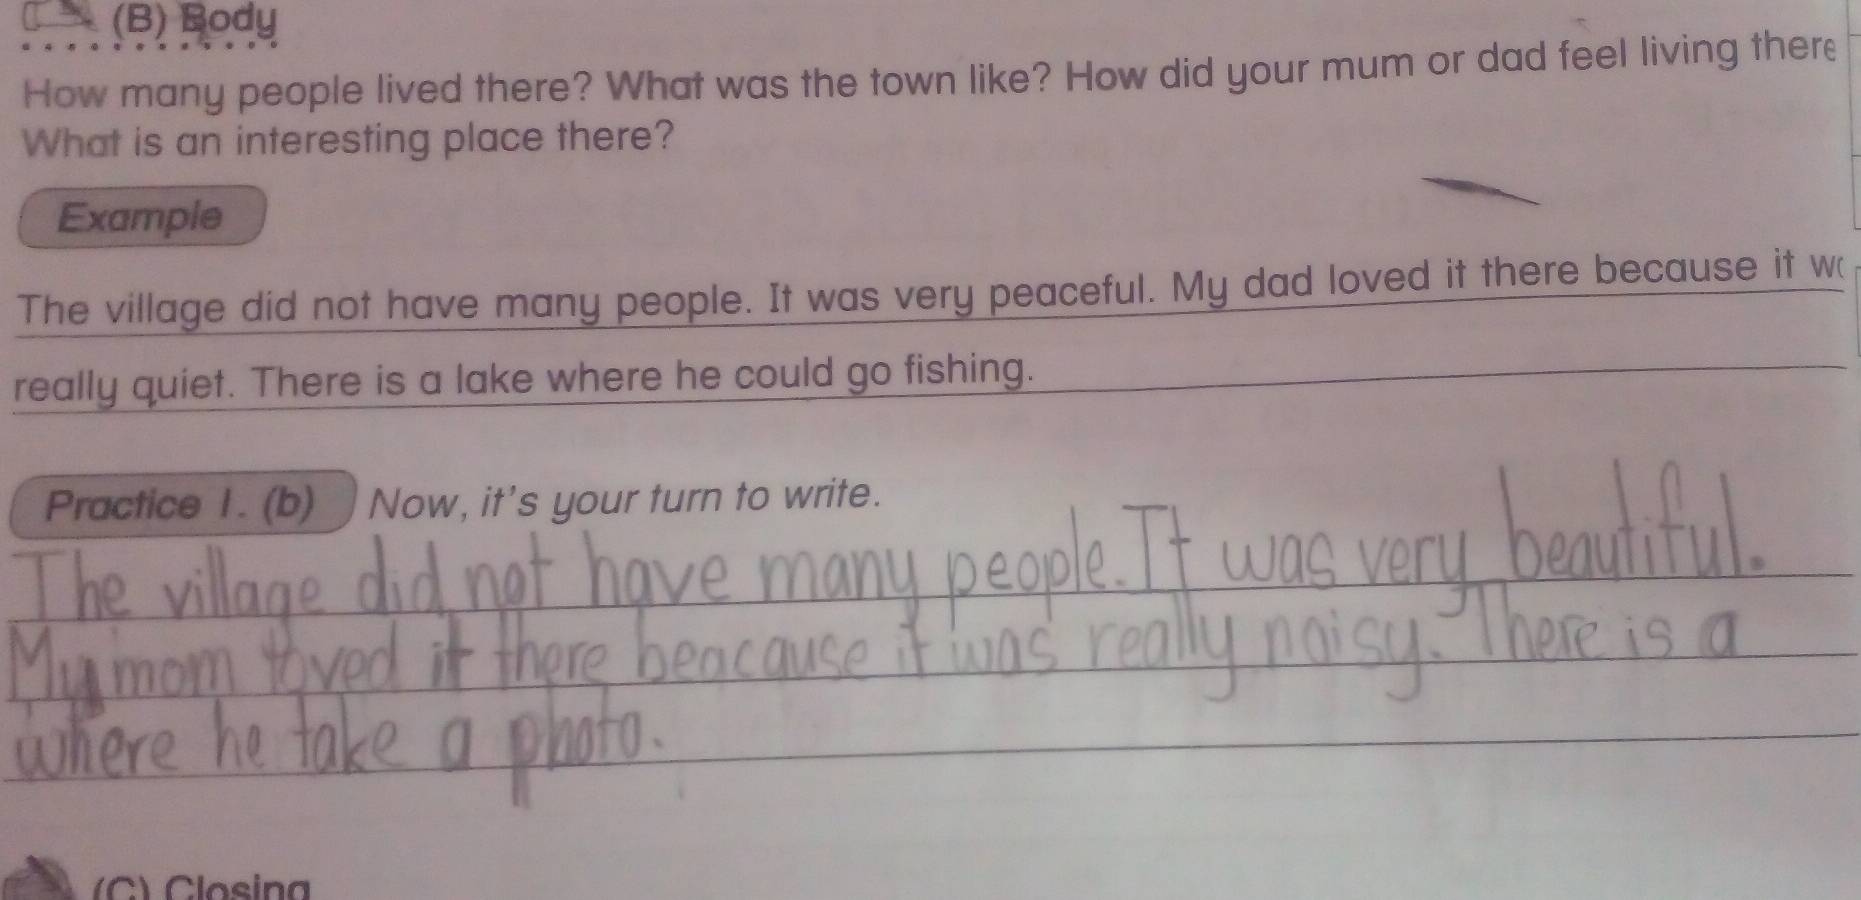 (B) Body
How many people lived there? What was the town like? How did your mum or dad feel living there
What is an interesting place there?
Example
The village did not have many people. It was very peaceful. My dad loved it there because it
really quiet. There is a lake where he could go fishing.
Practice 1. (b) Now, it's your turn to write.
The village did not have many people. It was very beautiful.
My mom loved it there beacause it was really noisy. There is a
where he take a photo.
(C) Closing